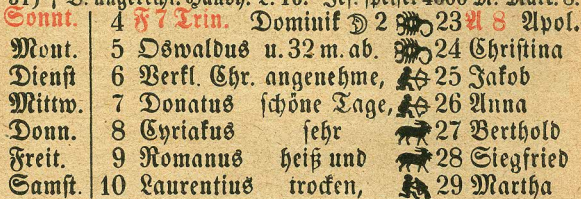 Sonnt. 4 F 7 Trin. Dominik ☽ 2 23 A 8 Apol.
Mont. 5 Oswaldus u. 32 m. ab. 24 Christina
Dienst 6 Verkl. Chr. angenehme, 25 Jakob
Mittw. 7 Donatus schöne Tage, 26 Anna
Donn. 8 Cyriakus sehr 27 Berthold
Freit. 9 Romanus heiß und 28 Siegfried
Samst. 10 Laurentius trocken, 29 Martha